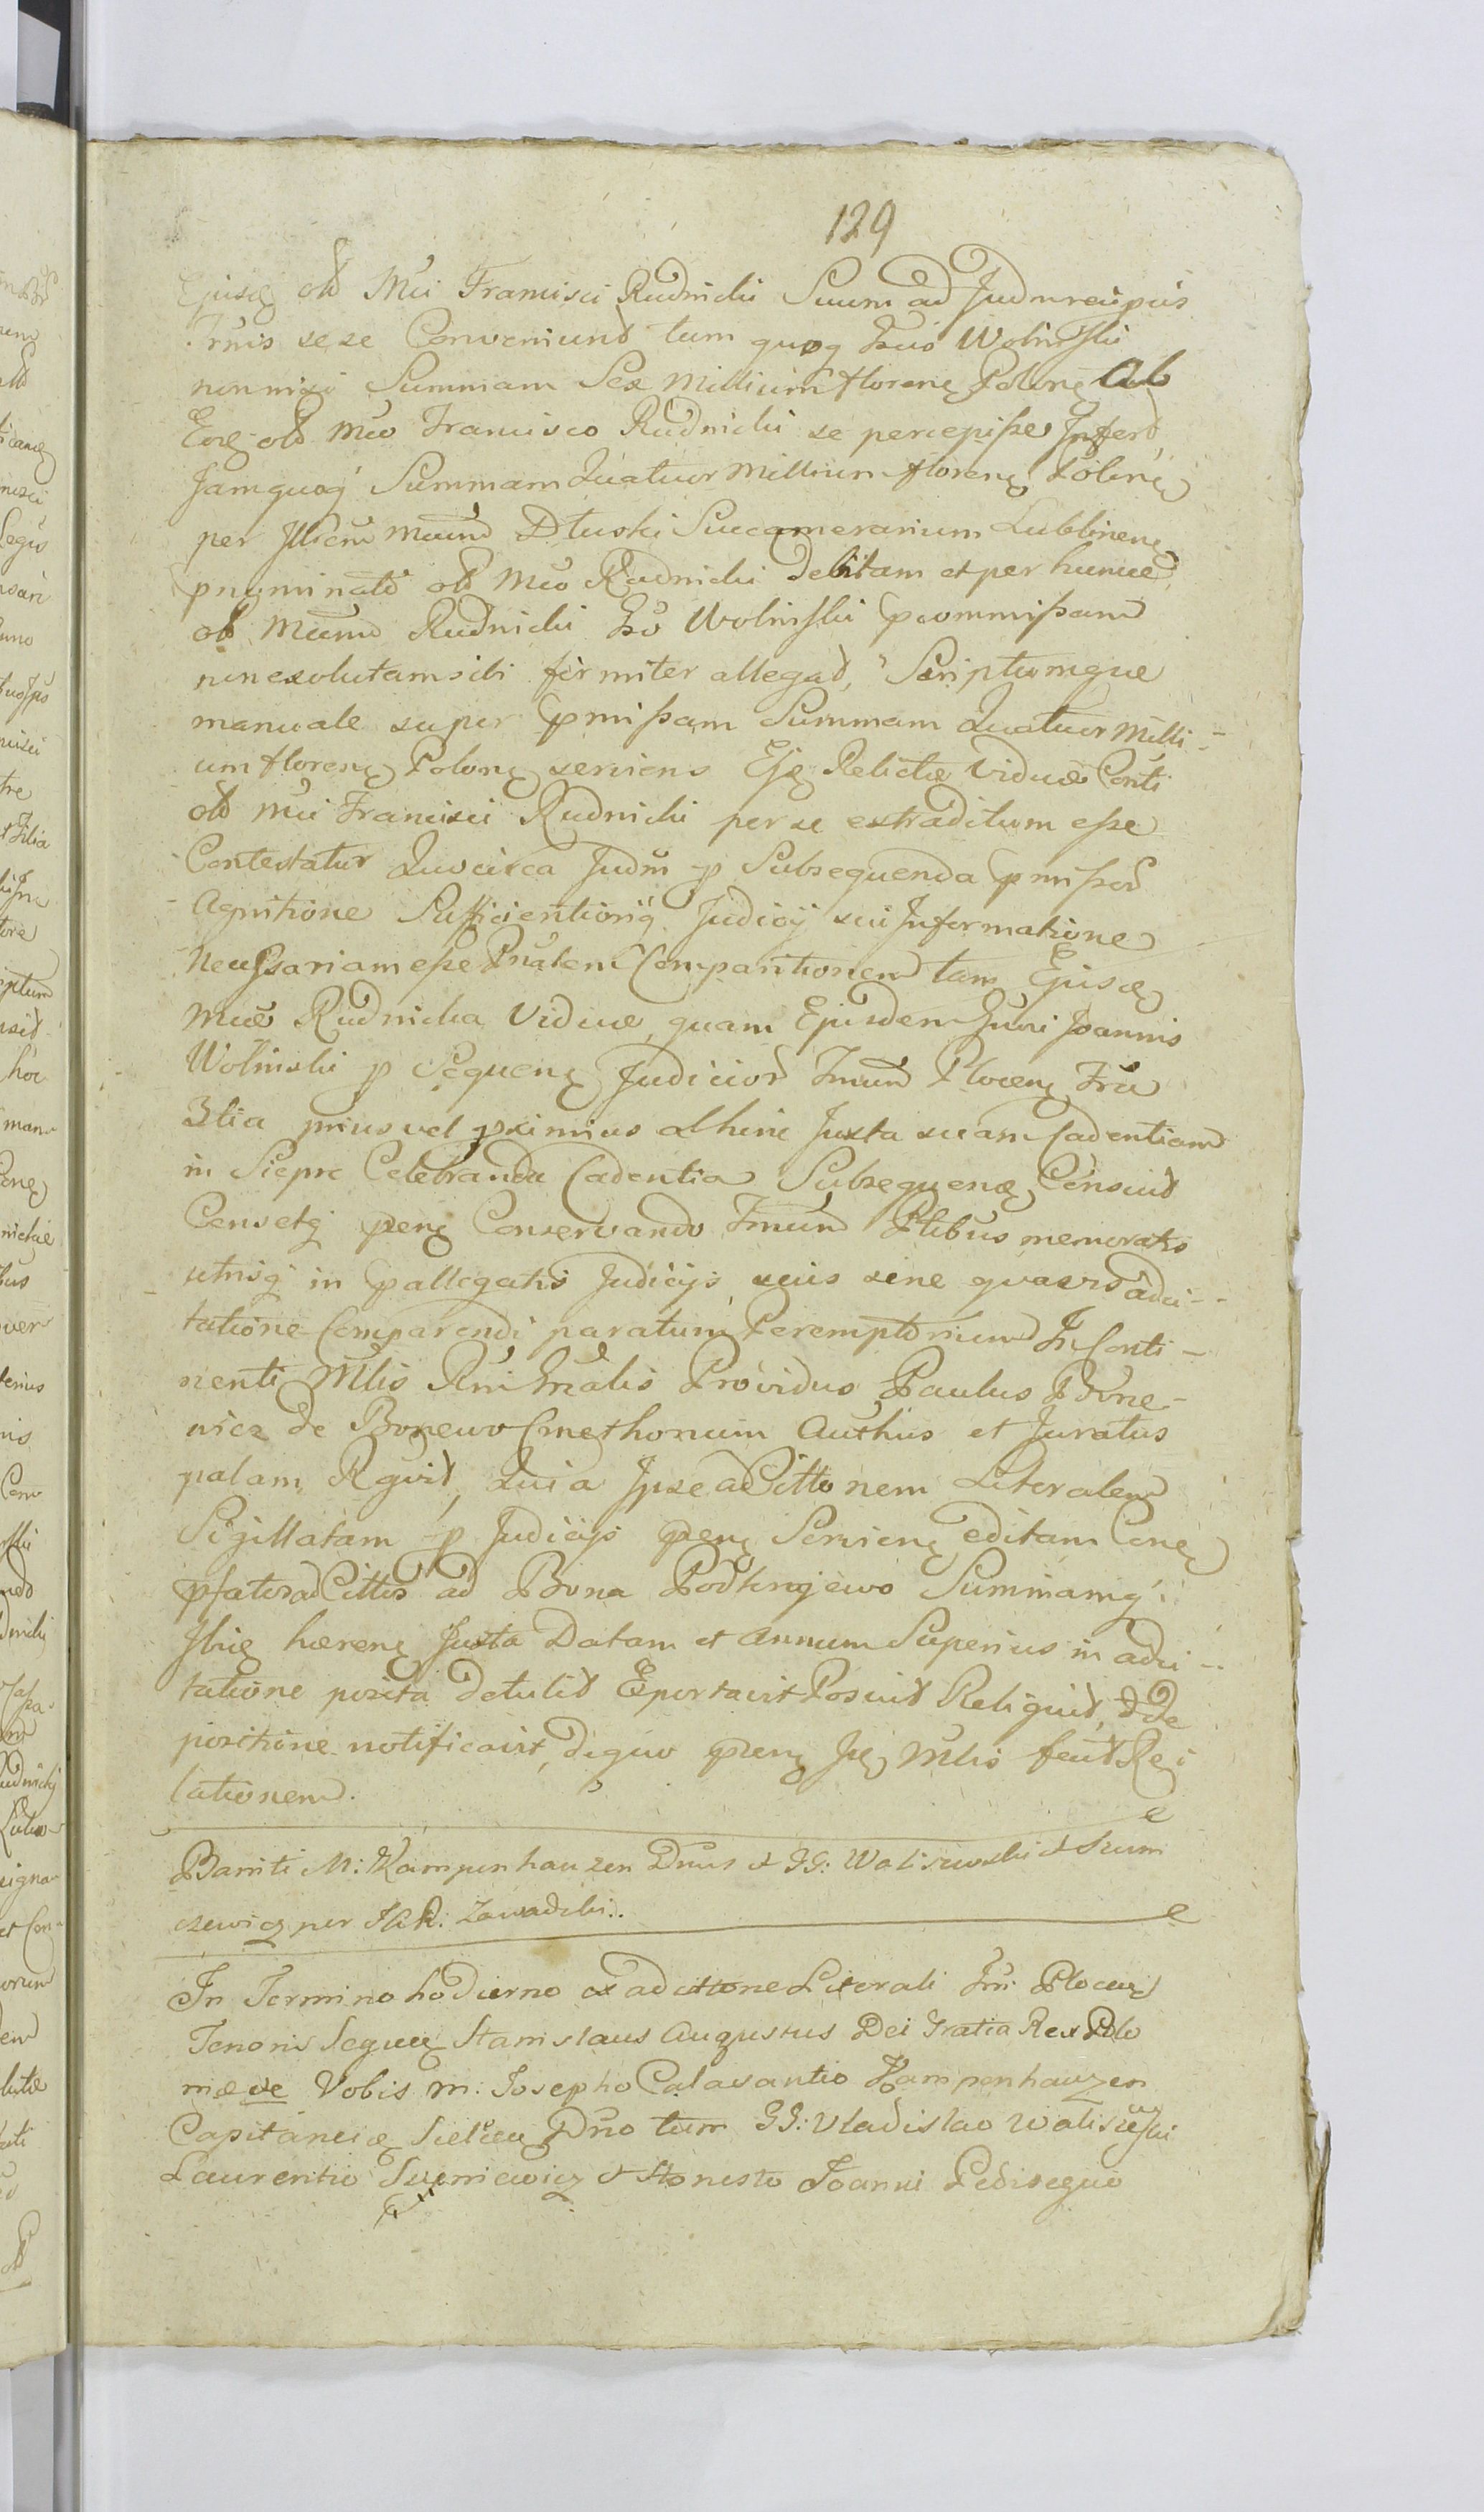 129
Ejusq olb Mci Francisci Rudnicki Suum ad Judm recipis
se se Conveniunt tum quoq Gsus Wolinski
non nisi Summam Sex Millium floreng Polong Ab
Eoq olb Mco Francisco Rudnicki se percepisse Infert
Jamquoq Summam Quatuor Millium floreng Polong
per Illrem Mcum Dłuski Succamerarium Lublineng
pnominato olb Mco Rudnicki debitam et per huncce
olb Mcum Rudnicki Gso Wolinski promissam
non exolutam sibi firmiter allegat, Scriptumque
manuale super pmissam Summam Quatuor Milli-
um floreng Polong serviens Ejq Relictæ Viduæ Conti
olb Mci Francisci Rudnicki per se extraditum esse
Contestatur Quocirca Judm p Subsequenda pmissor
Agnitione Sufficientioriq Judicij sui Informatione
Necessariam esse Pnalem Comparitionem tam Ejusq
Mcæ Rudnicka Viduæ, quam Ejusdem Gnri Joannis
Wolinski p Sequeng Judicior Tmum Ploceng Trri
3lia prius vel pximius abhinc Juxta suam Cadentiam
in Sieprc Celebranda Cadentia Subsequeng Censuit
Censetq pnng Conservando Tmum Ptibus memoratis
utrisq in pallegatis Judicijs, scils sine quavis adci-
tatione Comparendi paratum Peremptorium In Conti-
nenti Mlis Rni Gnralis Providus Paulus Bone-
wicz de Bonewo Cmethonum Authus et Juratus
palam Rgvit, Quia Ipse adCittonem Literalem
Sigillatam p Judicijs pnng Servieng editam Cong
pfator adCittos ad Bona Podkrajewo Summamq:
Ibiq hæreng Juxta Datam et Annum Superius in adci-
tatione posita detulit Eportavit Posuit Reliquit, & de
positione notificavit, de quo pnng Jq Mlis fecit Re:
lationem.
Banniti M: Kampenhauzen Dnus & GG: Walisewski & Szum
czewicz per Zawadzki.
In Termino hodierno ex adcittone Literali Trri Ploceng
Tenoris Sequeng Stanislaus Augustus Dei Gratia Rex Polo
niæ &c Vobis M: Josepho Calasantio Kampenhauzen
Capitaneiæ Dno tum GG: Vladislao Walisewski
Laurentio & Honesto Joanni Pedisequo